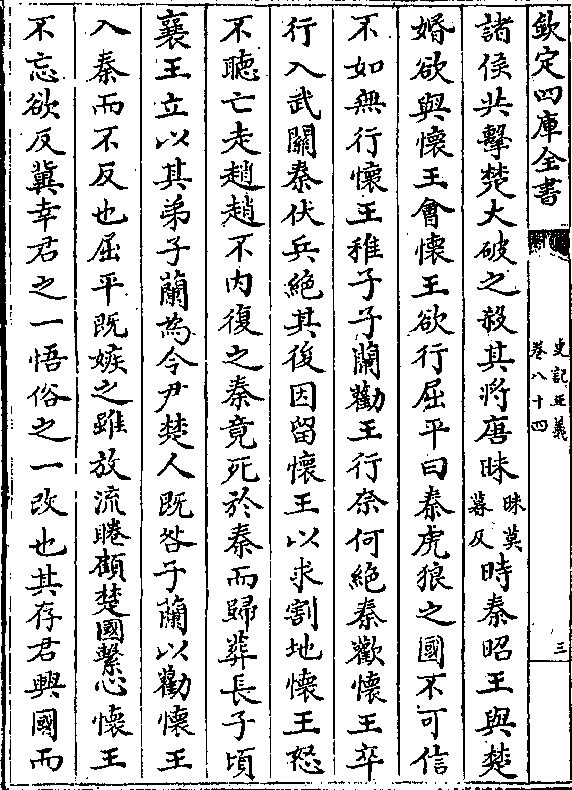 欽定四庫全書
史記正義
卷八十四
三
諸侯共擊楚大破之殺其將唐昧昧莫葛反時秦昭王與楚
婚欲與懷王會懷王欲行屈平曰秦虎狼之國不可信
不如無行懷王稚子子蘭勸王行奈何絶秦歡懷王卒
行入武關秦伏兵絶其後因留懷王以求割地懷王怒
不聽亡走趙趙不内復之秦竟死於秦而歸葬長子頃
襄王立以其弟子蘭為令尹楚人既咎子蘭以勸懷王
入秦而不反也屈平既嫉之雖放流睠顧楚國繫心懷王
不忘欲反冀幸君之一悟俗之一改也其存君興國而